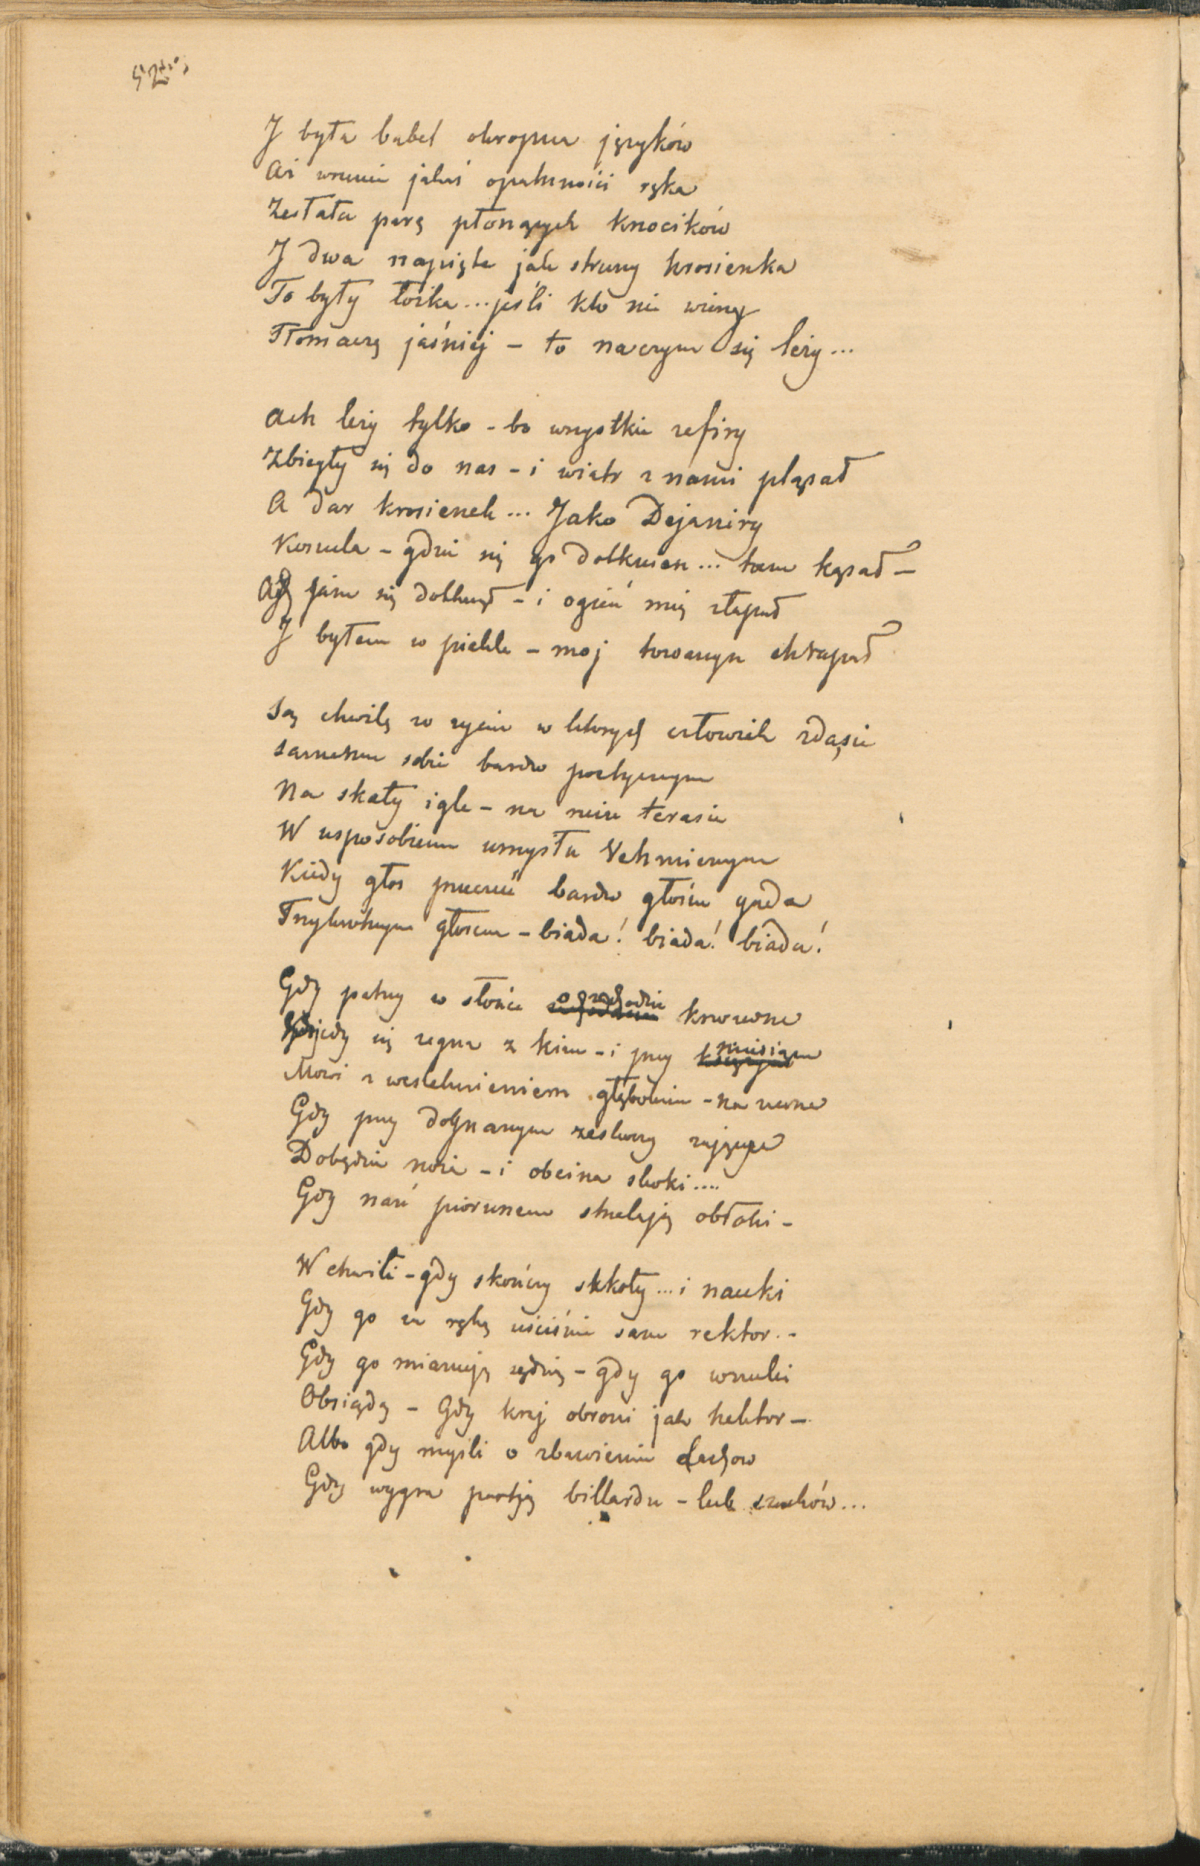 I była babel okropna języków
Aż wreście jakaś opatrzności ręka
Zesłała parę płonących knocików
I dwa napięte jak struny krosienka
To były łóżka... jeśli kto nie wierzy
Tłomaczę jaśniej – to na czym się leży...
Ach leży tylko – bo wszystkie zefiry
Zbiegły się do nas – i wiatr z nami pląsał
A dar krosienek... Jako Dejaniry
Koszula – gdzie się go dotknąłem... tam kąsał –
jam się dotknął – i ogień mię złapał
I byłem w piekle – moj towarzysz chrapał
Są chwilę w życiu w ktorych człowiek zdasię
Samemu sobie bardzo poetycznym
Na skały igle – na terasie
W usposobieniu umysłu Vehmicznym
Kiedy głos przeczuć bardzo głośno gada
Trzykrotnym głosem – biada! biada! biada!
Gdy patrzy w słońce o zachodzie krwawne
Kiedy się żegna z kim – i przy miesiącu
Mowi z westchnieniem głębokim – na
Gdy przy dognanym zeskoczy zającu
Dobędzie noża – i obcina skoki....
Gdy nań piorunem strzelają obłoki –
W chwili – gdy skończy szkoły... i nauki
Gdy go za rękę uściśnie sam rektor..
Gdy go mianują sędzią – gdy go wnuki
Obsiądą – Gdy kraj obroni jak hektor –
Albo gdy myśli o zbawieniu Lachow
Gdy wygra partję billardu – lub szachów...